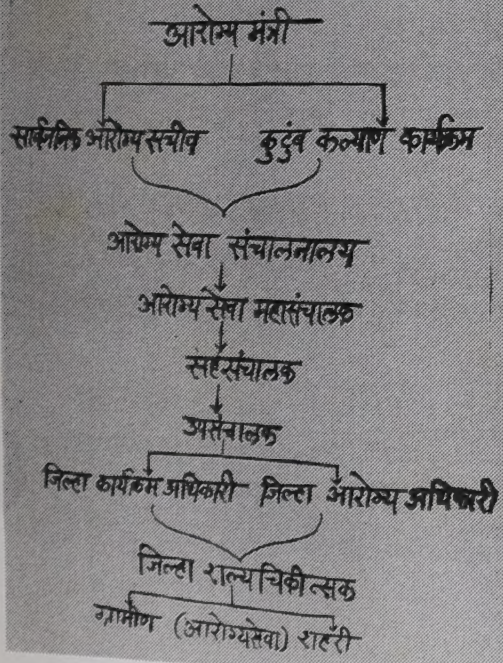 आरोग्य मंत्री
सार्वजनिक आरोग्य सचीव कुटुंब कल्याण कार्यक्रम
आरोग्य सेवा संचालनालय
आरोग्य सेवा महासंचालक
सहसंचालक
उपसंचालक
जिल्हा कार्यक्रम अधिकारी जिल्हा आरोग्य अधिकारी
जिल्हा शल्यचिकीत्सक
ग्रामीण (आरोग्यसेवा) शहरी